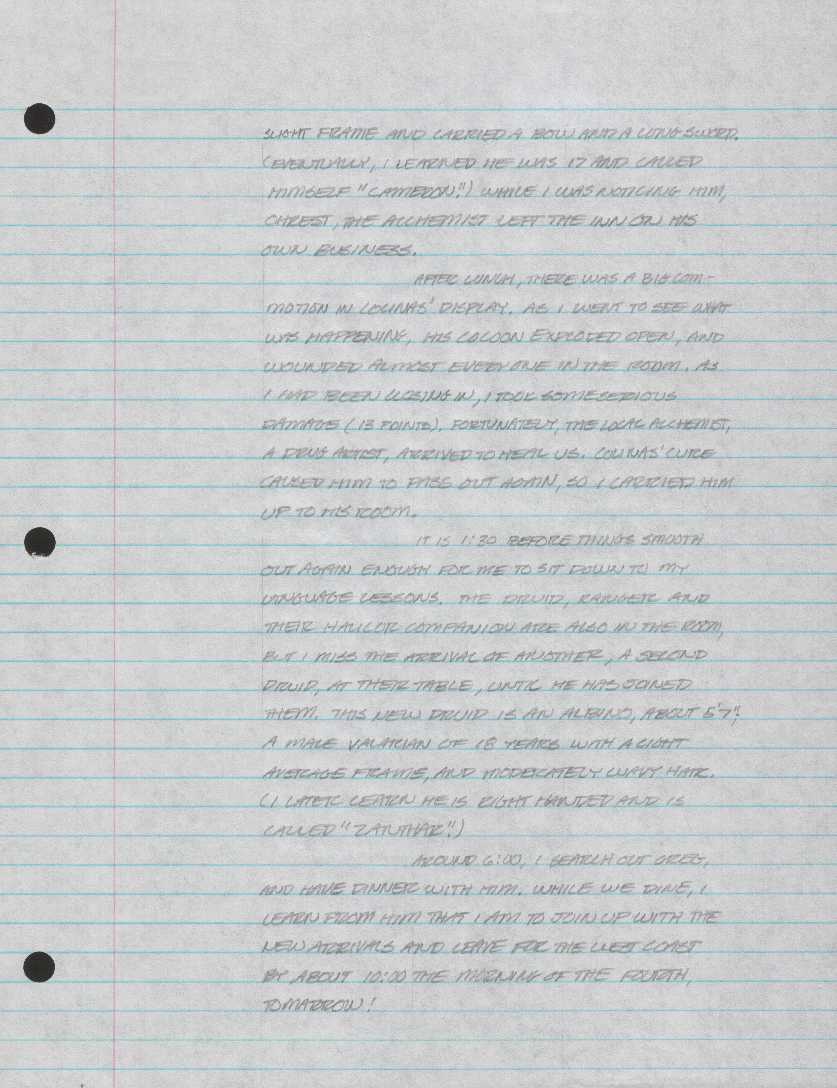 SLIGHT FRAME AND CARRIED A BOW AND A LONG SWORD.
(EVENTUALLY, I LEARNED HE WAS 17 AND CALLED
HIMSELF "CAMERON".) WHILE I WAS NOTICING HIM,
CHREST, THE ALCHEMIST LEFT THE INN ON HIS
OWN BUSINESS.
AFTER LUNCH, THERE WAS A BIG COM-
MOTION IN COLINAS' DISPLAY. AS I WENT TO SEE WHAT
WAS HAPPENING, HIS COCOON EXPLODED OPEN, AND
WOUNDED ALMOST EVERYONE IN THE ROOM. AS
I HAD BEEN CLOSING IN, I TOOK SOME SERIOUS
DAMAGE (13 POINTS). FORTUNATELY, THE LOCAL ALCHEMIST,
A DRUG ARTIST, ARRIVED TO HEAL US. COLINAS' CURE
CAUSED HIM TO PASS OUT AGAIN, SO I CARRIED HIM
UP TO HIS ROOM.
IT IS 1:30 BEFORE THINGS SMOOTH
OUT AGAIN ENOUGH FOR ME TO SIT DOWN TO MY
LANGUAGE LESSONS. THE DRUID, RANGER AND
THEIR COMPANION ARE ALSO IN THE ROOM,
BUT I MISS THE ARRIVAL OF ANOTHER, A SECOND
DRUID, AT THEIR TABLE, UNTIL HE HAS JOINED
THEM. THIS NEW DRUID IS AN ALBINO, ABOUT 5'7",
A MALE VALARIAN OF 18 YEARS WITH A LIGHT
AVERAGE FRAME, AND MODERATELY WAVY HAIR.
(I LATER LEARN HE IS RIGHT HANDED AND IS
CALLED "ZANTHAR".)
AROUND 6:00, I SEARCH OUT GREG,
AND HAVE DINNER WITH HIM. WHILE WE DINE, I
LEARN FROM HIM THAT I AM TO JOIN UP WITH THE
NEW ARRIVALS AND LEAVE FOR THE WEST COAST
BY ABOUT 10:00 THE MORNING OF THE FOURTH,
TOMARROW!